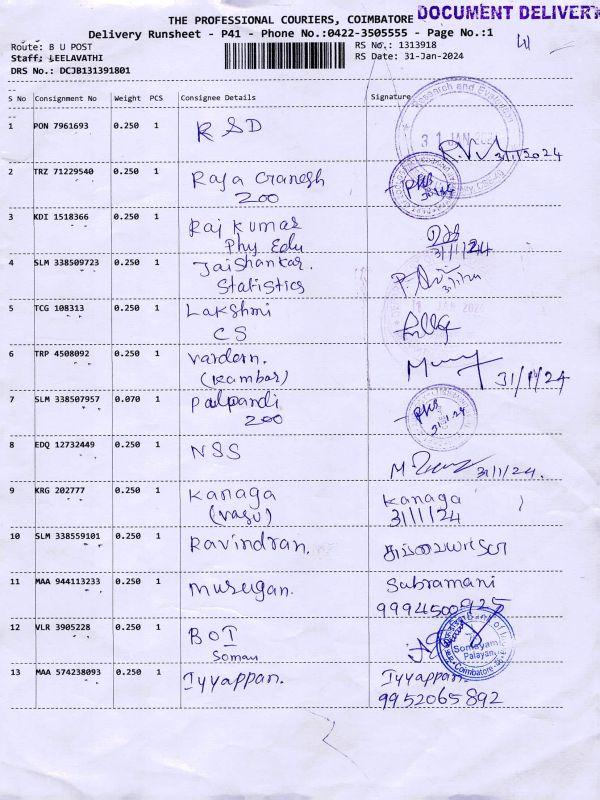 DOCUMENT DELIVERY
THE PROFESSIONAL COURIERS, COIMBATORE
Delivery Runsheet - P41 - Phone No.:0422-3505555 - Page No.:1
Route: B U POST
RS No.: 1313918
Staff: LEELAVATHI
RS Date: 31-Jan-2024
DRS No.: DCJB131391801
S No Consignment No Weight PCS Consignee Details Signature
1 PON 7961693 0.250 1 RSD
31 JAN 2024
31/1/2024
2 TRZ 71229540 0.250 1 Raja Ganesh
200
3 KDI 1518366 0.250 1 Raj kumar
Phy. Edu
31/1/24
4 SLM 338509723 0.250 1 Jaishankar.
Statistics
5 TCG 108313 0.250 1 Lakshmi
CS
6 TRP 4508092 0.250 1 Vardern.
(Kambar)
31/1/24
7 SLM 338507957 0.070 1 Palpandi
200
31/1/24
8 EDQ 12732449 0.250 1 NSS
31/1/24.
9 KRG 202777 0.250 1 Kanaga Kanaga
(Vasu) 31/1/24
10 SLM 338559101 0.250 1 Ravindran.
11 MAA 944113233 0.250 1 Murugan. Subramani
9994500925
12 VLR 3905228 0.250 1 BOI
Soman
Somayam
Palayam
Coimbatore
13 MAA 574238093 0.250 1 Iyyappan. Iyyappan.
9952065892